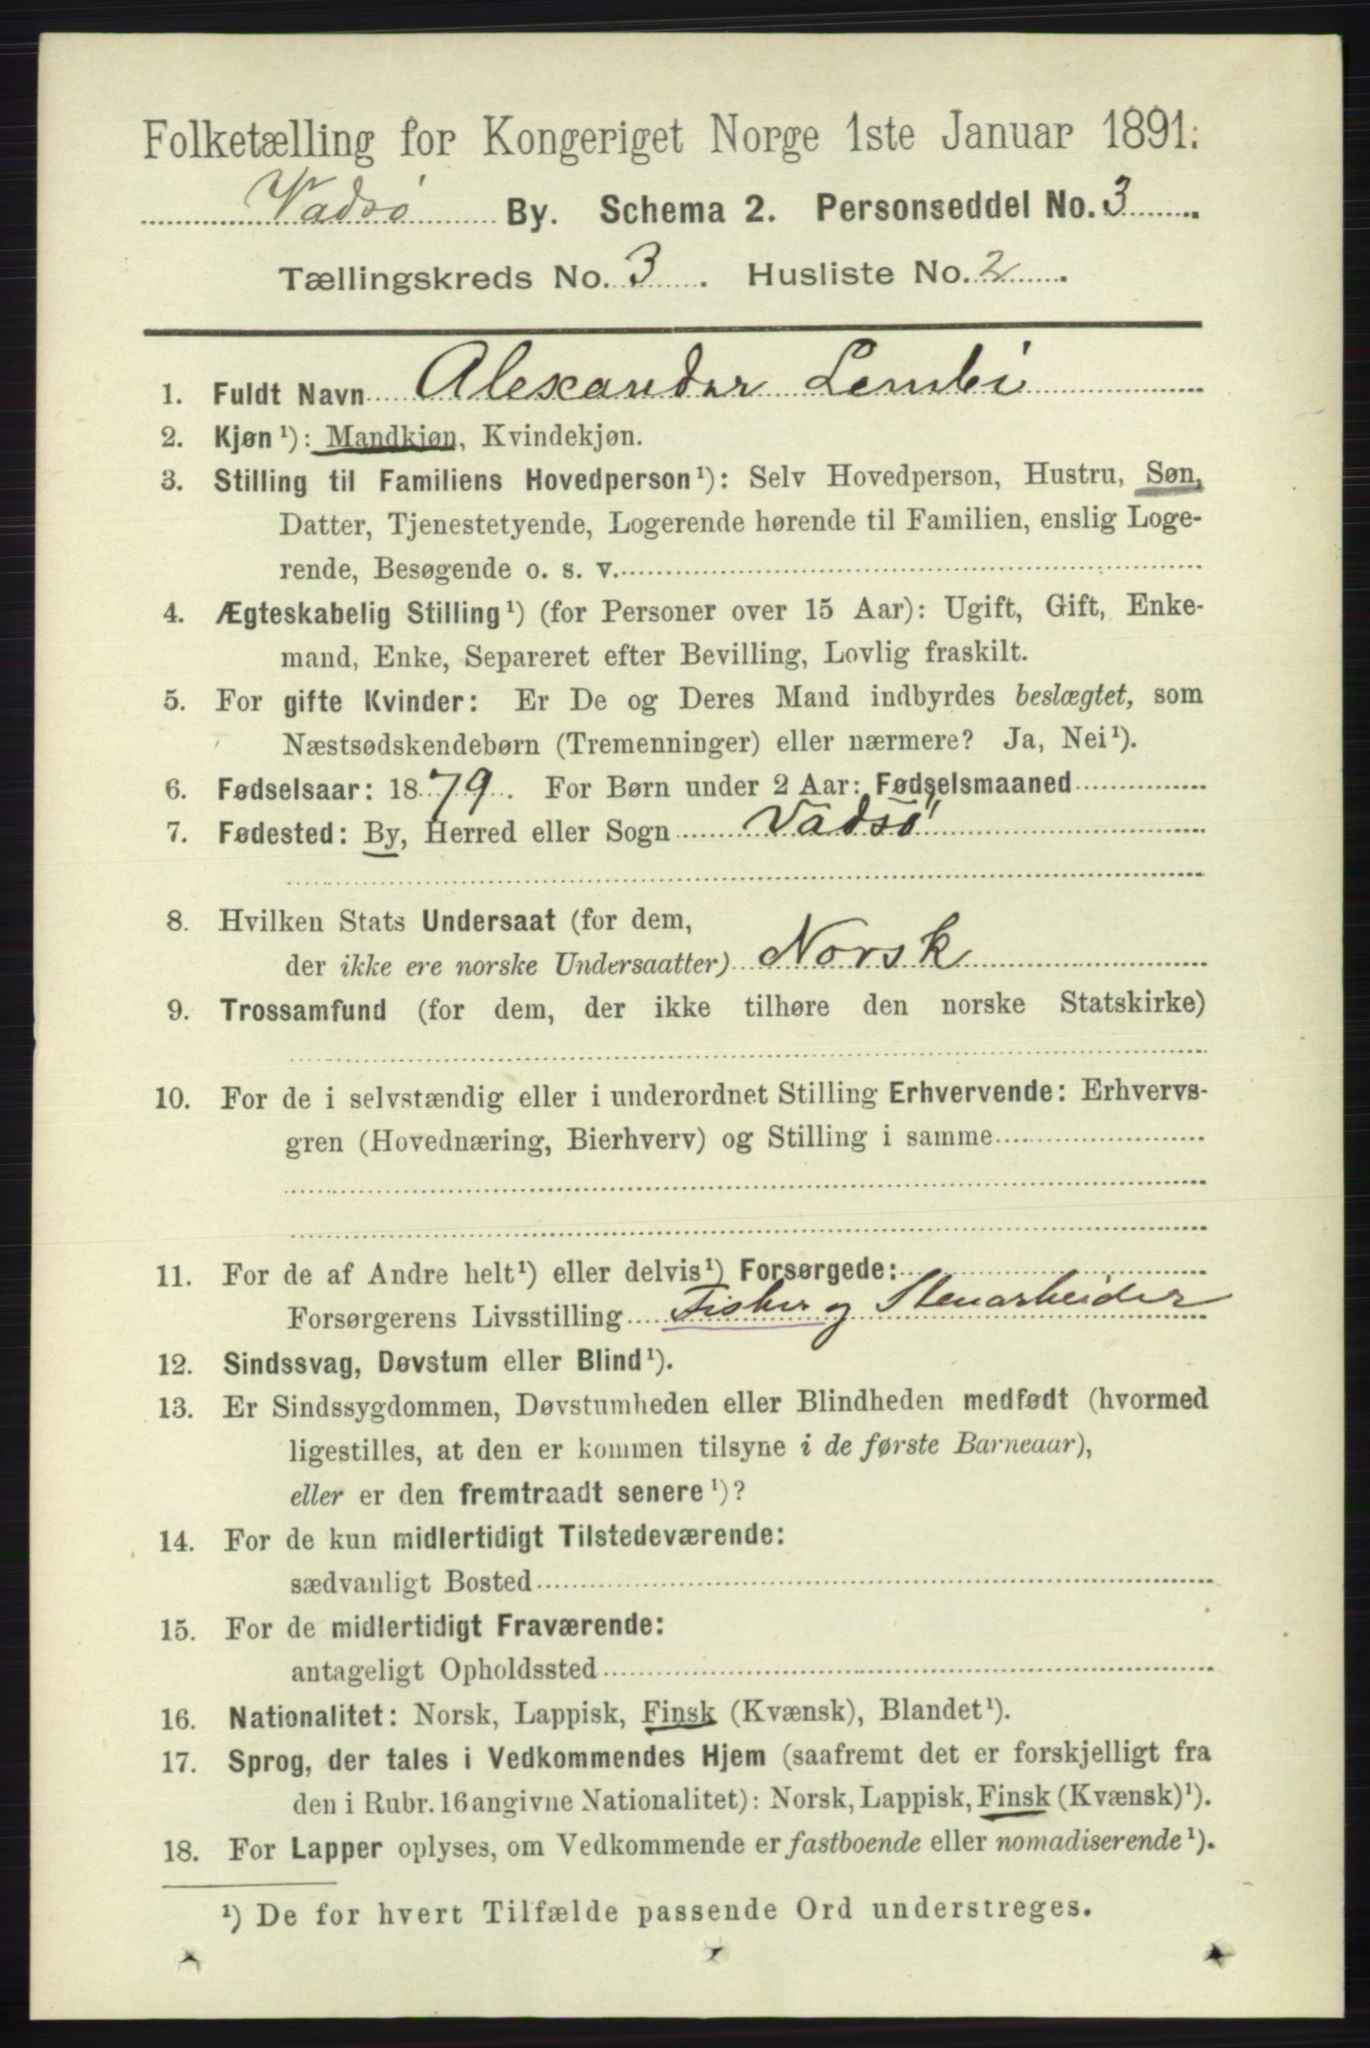 Folketælling for Kongeriget Norge 1ste Januar 1891.
Vadsö By. Schema 2. Personseddel No. 3
Tællingskreds No. 3. Husliste No. 2.
1. Fuldt Navn Alexander Lembi
2. Kjøn¹): Mandkjøn, Kvindekjøn.
3. Stilling til Familiens Hovedperson¹): Selv Hovedperson, Hustru, Søn,
Datter, Tjenestetyende, Logerende hørende til Familien, enslig Loge-
rende, Besøgende o. s. v.
4. Ægteskabelig Stilling¹) (for Personer over 15 Aar): Ugift, Gift, Enke-
mand, Enke, Separeret efter Bevilling, Lovlig fraskilt.
5. For gifte Kvinder: Er De og Deres Mand indbyrdes beslægtet, som
Næstsødskendebørn (Tremenninger) eller nærmere? Ja, Nei¹).
6. Fødselsaar: 1879. For Børn under 2 Aar: Fødselsmaaned
7. Fødested: By, Herred eller Sogn Vadsö
8. Hvilken Stats Undersaat (for dem,
der ikke ere norske Undersaatter) Norsk
9. Trossamfund (for dem, der ikke tilhøre den norske Statskirke)
10. For de i selvstændig eller i underordnet Stilling Erhvervende: Erhvervs-
gren (Hovednæring, Bierhverv) og Stilling i samme
11. For de af Andre helt¹) eller delvis¹) Forsørgede:
Forsørgerens Livsstilling Fisker og Stenarbeider
12. Sindssvag, Døvstum eller Blind¹).
13. Er Sindssygdommen, Døvstumheden eller Blindheden medfødt (hvormed
ligestilles, at den er kommen tilsyne i de første Barneaar),
eller er den fremtraadt senere¹)?
14. For de kun midlertidigt Tilstedeværende:
sædvanligt Bosted
15. For de midlertidigt Fraværende:
antageligt Opholdssted
16. Nationalitet: Norsk, Lappisk, Finsk (Kvænsk), Blandet¹).
17. Sprog, der tales i Vedkommendes Hjem (saafremt det er forskjelligt fra
den i Rubr. 16 angivne Nationalitet): Norsk, Lappisk, Finsk (Kvænsk)¹).
18. For Lapper oplyses, om Vedkommende er fastboende eller nomadiserende¹).
¹) De for hvert Tilfælde passende Ord understreges.